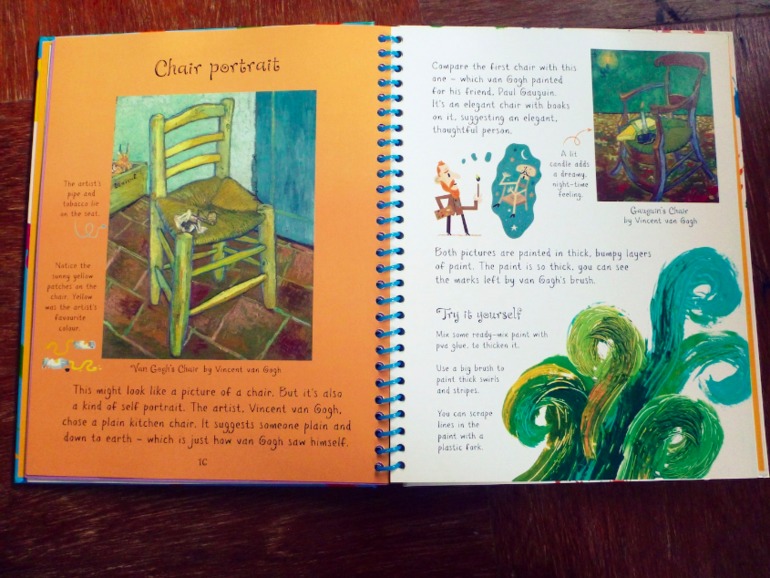 Chair portrait
The artist's
pipe and
tobacco lie
on the seat.
Vincent
Notice the
sunny yellow
patches on the
chair. Yellow
was the artist's
favourite
colour.
Van Gogh's Chair by Vincent van Gogh
This might look like a picture of a chair. But it's also
a kind of self portrait. The artist, Vincent van Gogh,
chose a plain kitchen chair. It suggests someone plain and
down to earth – which is just how van Gogh saw himself.
Compare the first chair with this
one – which van Gogh painted
for his friend, Paul Gauguin.
It's an elegant chair with books
on it, suggesting an elegant,
thoughtful person.
A lit
candle adds
a dreamy,
night-time
feeling.
Gauguin's Chair
by Vincent van Gogh
Both pictures are painted in thick, bumpy layers
of paint. The paint is so thick, you can see
the marks left by van Gogh's brush.
Try it yourself
Mix some ready-mix paint with
pva glue, to thicken it.
Use a big brush to
paint thick swirls
and stripes.
You can scrape
lines in the
paint with a
plastic fork.